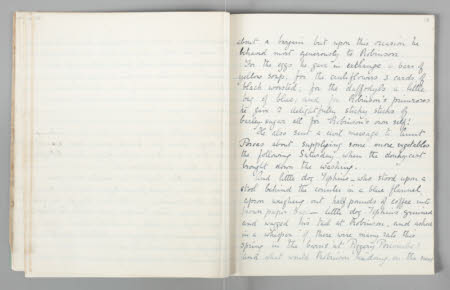 about a bargain but upon this occasion he
behaved most generously to Robinson.
For the eggs he give in exchange a bar of
yellow soap, for the cauliflowers 3 cards of
black worsted, for the daffodyls a little
bag of blue, and for Robinson's primroses
he give 2 delightfully sticky sticks of
barley sugar all for Robinson's own self!
He also sent a civil message to Aunt
Porcas about supplying some more vegetables
the following Saturday, when the donkey cart
brought down the washing.
And little dog Tiphins — who stood upon a
stool behind the counter in a blue flannel
apron weighing out half pounds of coffee into
brown paper bags — little dog Tiphins grinned
and wagged his tail at Robinson, and asked
in a whisper if there were many rats this
spring in the barns at Piggery Porcombe?
And what would Robinson be doing on the